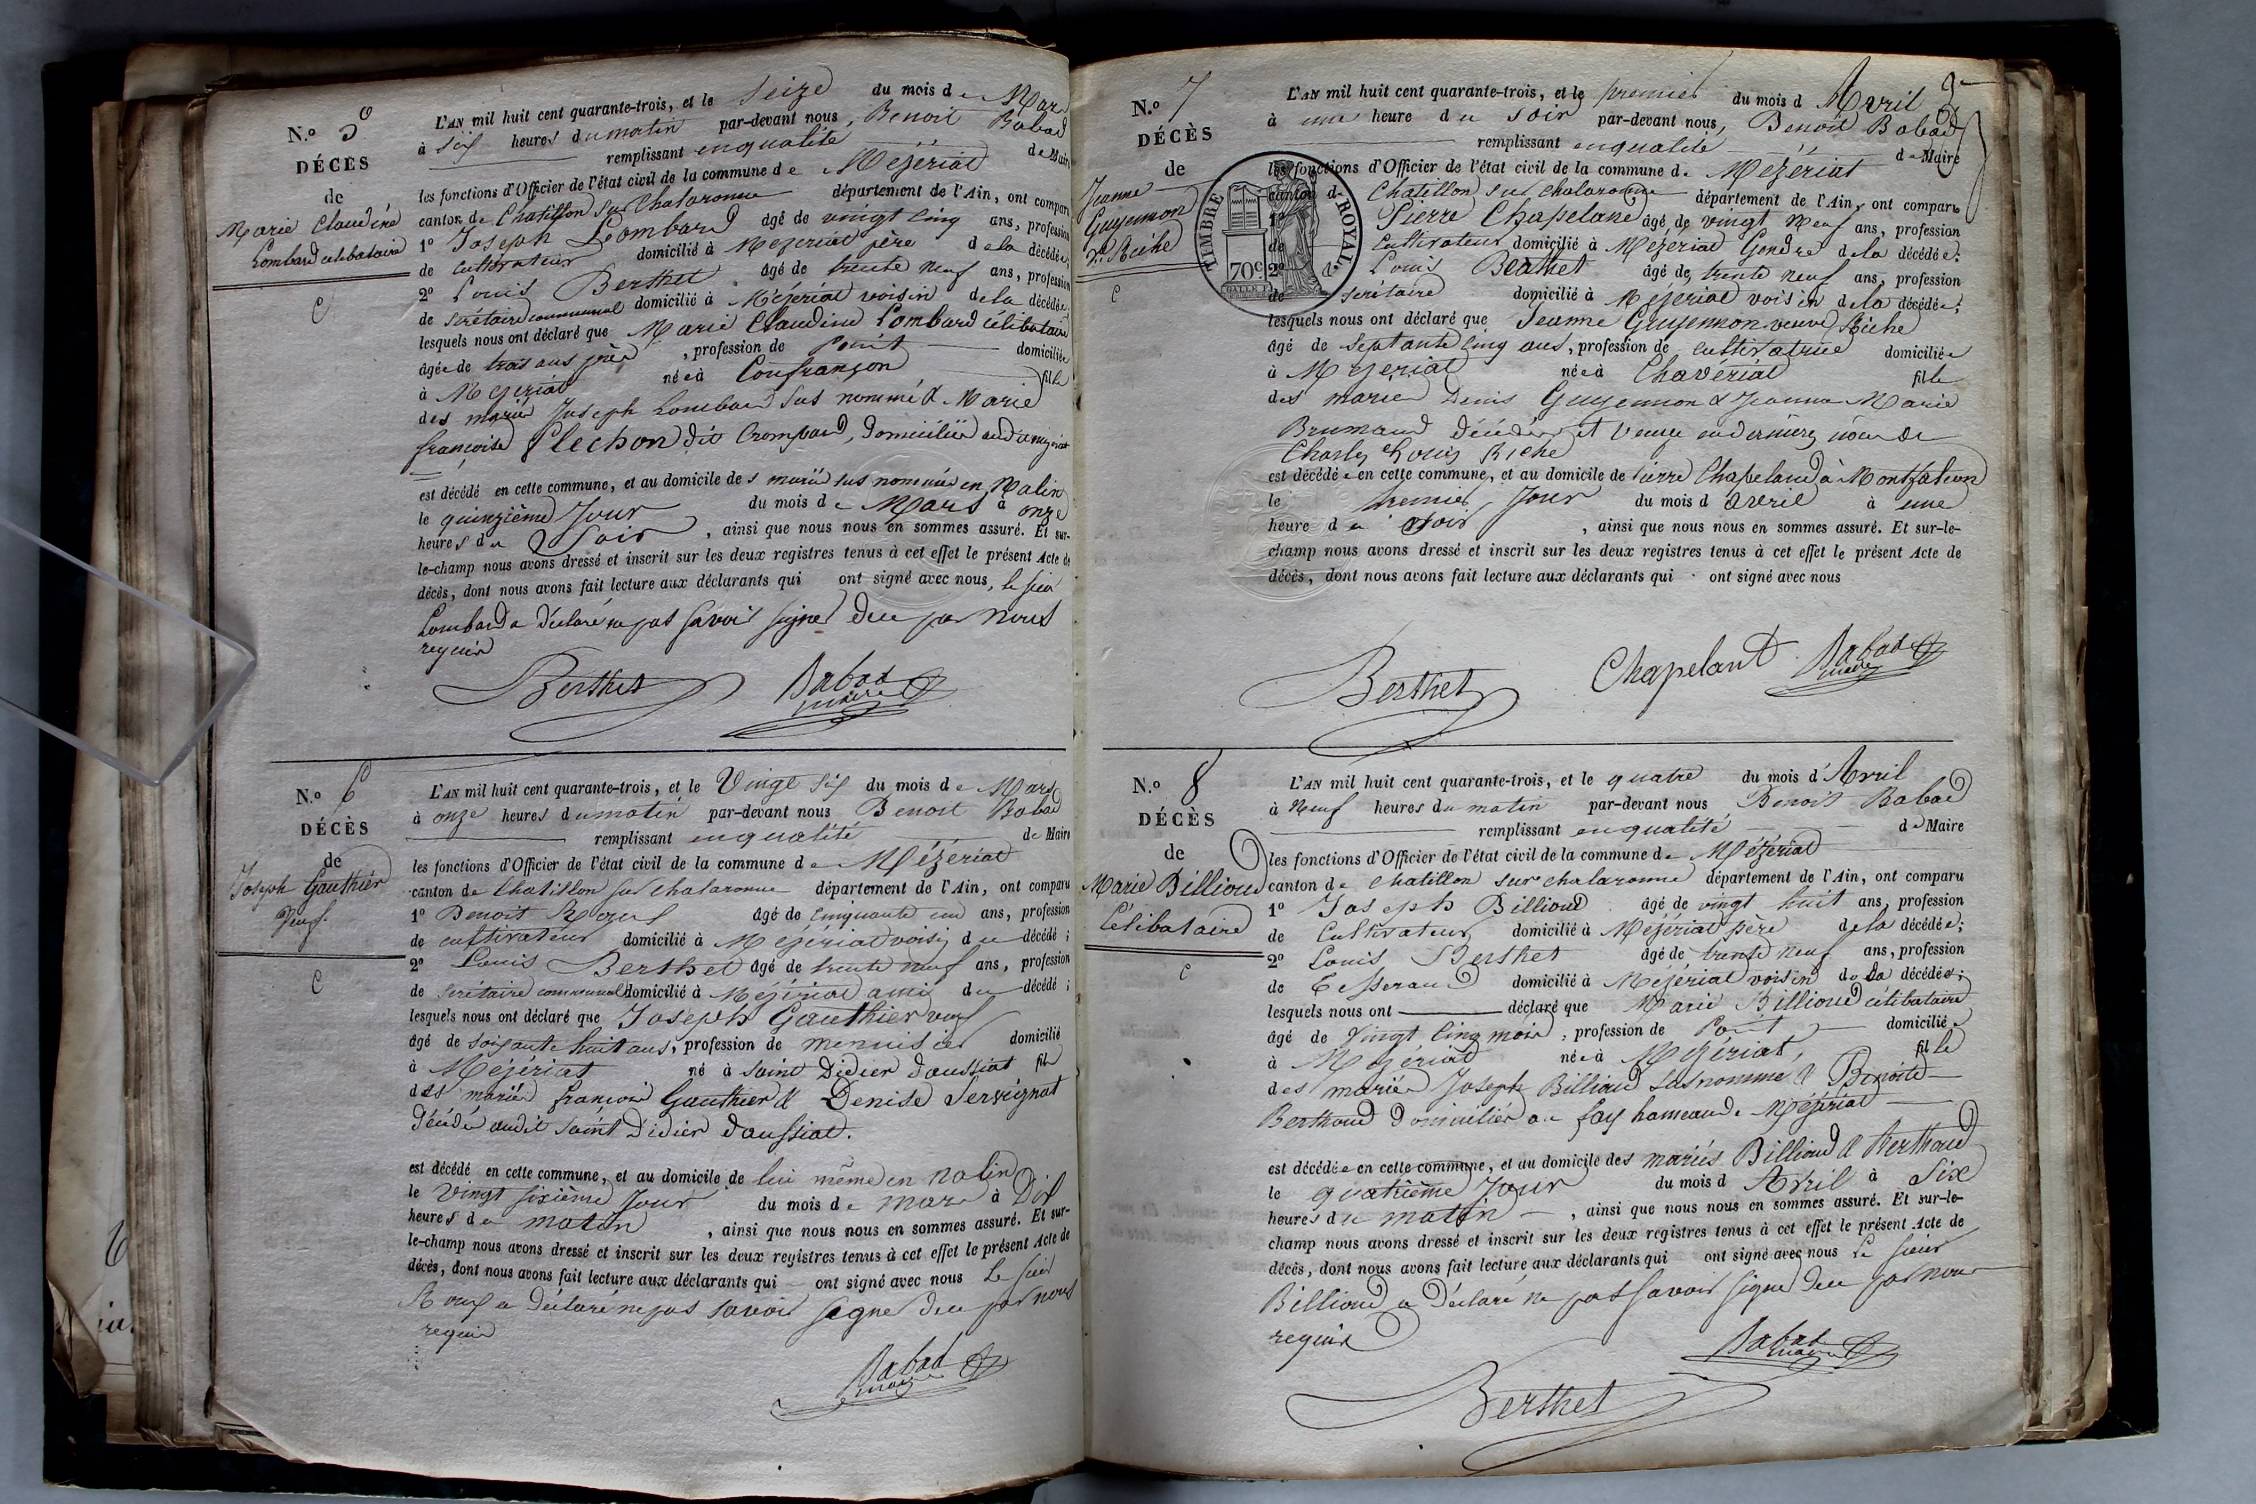 N.o 5
DÉCÈS
de
Marie Claudine
Lombard célibataire
L'AN mil huit cent quarante-trois, et le Seize du mois de Mars
à six heures du matin par-devant nous, Benoit Babad
remplissant en qualité de Maire
les fonctions d'Officier de l'état civil de la commune de Mézériat
canton de Chatillon sur Chalaronne département de l'Ain, ont comparu
1o Joseph Lombard âgé de vingt cinq ans, profession
de cultivateur domicilié à Mezeriat père de la décédée;
2o Louis Berthet âgé de trente neuf ans, profession
de secrétaire communal domicilié à Mézériat voisin de la décédée
lesquels nous ont déclaré que Marie Claudine Lombard célibataire
âgée de trois ans , profession de point domiciliée
à Mezeriat née à Confrançon fille
des mariés Joseph Lombard sus nommé & Marie
françoise Plechon dit Crompard, domiciliée audit mezeriat
est décédé en cette commune, et au domicile des mariés sus nommés en Malin
le quinzième Jour du mois de Mars à onze
heures du Soir , ainsi que nous nous en sommes assuré. Et sur-
le-champ nous avons dressé et inscrit sur les deux registres tenus à cet effet le présent Acte de
décès, dont nous avons fait lecture aux déclarants qui ont signé avec nous, le sieur
Lombard a déclaré ne pas savoir signer de ce par nous
requis
Berthet Babad
maire
N.o 6
DÉCÈS
de
Joseph Gauthier
veuf.
L'AN mil huit cent quarante-trois, et le Vingt six du mois de Mars
à onze heures du matin par-devant nous Benoit Babad
remplissant en qualité de Maire
les fonctions d'Officier de l'état civil de la commune de Mézériat
canton de Chatillon sur Chalaronne département de l'Ain, ont comparu
1o Benoit Roux âgé de cinquante un ans, profession
de cultivateur domicilié à Mézériat voisin du décédé ;
2o Louis Berthet âgé de trente neuf ans, profession
de secrétaire communal domicilié à Mézériat ami du décédé ;
lesquels nous ont déclaré que Joseph Gauthier veuf
âgé de soixante huit ans, profession de menuisier domicilié
à Mézériat né à Saint Didier daussiat fils
des mariés françois Gauthier & Denise Servignat
décédés audit Saint Didier daussiat.
est décédé en cette commune, et au domicile de lui même en Malin
le Vingt sixième Jour du mois de mars à Dix
heures du matin , ainsi que nous nous en sommes assuré. Et sur-
le-champ nous avons dressé et inscrit sur les deux registres tenus à cet effet le présent Acte de
décès, dont nous avons fait lecture aux déclarants qui ont signé avec nous le sieur
Roux a déclaré ne pas savoir signer de ce par nous
requis
Babad
maire
N.o 7
DÉCÈS
de
Jeanne
Guyennon
ve Riche
TIMBRE ROYAL
70c
L'AN mil huit cent quarante-trois, et le premier du mois d'Avril
à une heure du soir par-devant nous, Benoit Babad
remplissant en qualité de Maire
les fonctions d'Officier de l'état civil de la commune de Mézériat
canton de Chatillon sur Chalaronne département de l'Ain, ont comparu
1o Pierre Chapeland âgé de vingt neuf ans, profession
de Cultivateur domicilié à Mézériat Gendre de la décédée;
2o Louis Berthet âgé de trente neuf ans, profession
de secrétaire domicilié à Mézériat voisin de la décédée;
lesquels nous ont déclaré que Jeanne Guyennon veuve Riche
âgé de septante cinq ans, profession de cultivatrice domiciliée
à Mezeriat née à Chavériat fille
des mariés Denis Guyennon & Jeanne Marie
Brumand décédés et veuve en dernières noces de
Charles Louis Riche
est décédée en cette commune, et au domicile de Pierre Chapeland à Montfalcon
le premier Jour du mois d'avril à une
heure du soir , ainsi que nous nous en sommes assuré. Et sur-le-
champ nous avons dressé et inscrit sur les deux registres tenus à cet effet le présent Acte de
décès, dont nous avons fait lecture aux déclarants qui ont signé avec nous
Berthet Chapelant Babad
maire
N.o 8
DÉCÈS
de
Marie Billioud
Célibataire
L'AN mil huit cent quarante-trois, et le quatre du mois d'Avril
à Neuf heures du matin par-devant nous Benoit Babad
remplissant en qualité de Maire
les fonctions d'Officier de l'état civil de la commune de Mézériat
canton de Chatillon sur chalaronne département de l'Ain, ont comparu
1o Joseph Billioud âgé de vingt huit ans, profession
de Cultivateur domicilié à Mézériat père de la décédée;
2o Louis Berthet âgé de trente neuf ans, profession
de Tisserand domicilié à Mézériat voisin de la décédée;
lesquels nous ont déclaré que Marie Billioud célibataire
âgé de Vingt cinq mois, profession de Point domiciliée
à Mézériat née à Mézériat, fille
des mariés Joseph Billioud susnommé & Benoite
Berthoud domiciliés au fay hameau de Mézériat
est décédée en cette commune, et au domicile des mariés Billioud & Berthoud
le quatrième Jour du mois d'Avril à Six
heures du matin , ainsi que nous nous en sommes assuré. Et sur-le-
champ nous avons dressé et inscrit sur les deux registres tenus à cet effet le présent Acte de
décès, dont nous avons fait lecture aux déclarants qui ont signé avec nous le sieur
Billioud a déclaré ne pas savoir signer de ce par nous
requis
Babad
maire
Berthet